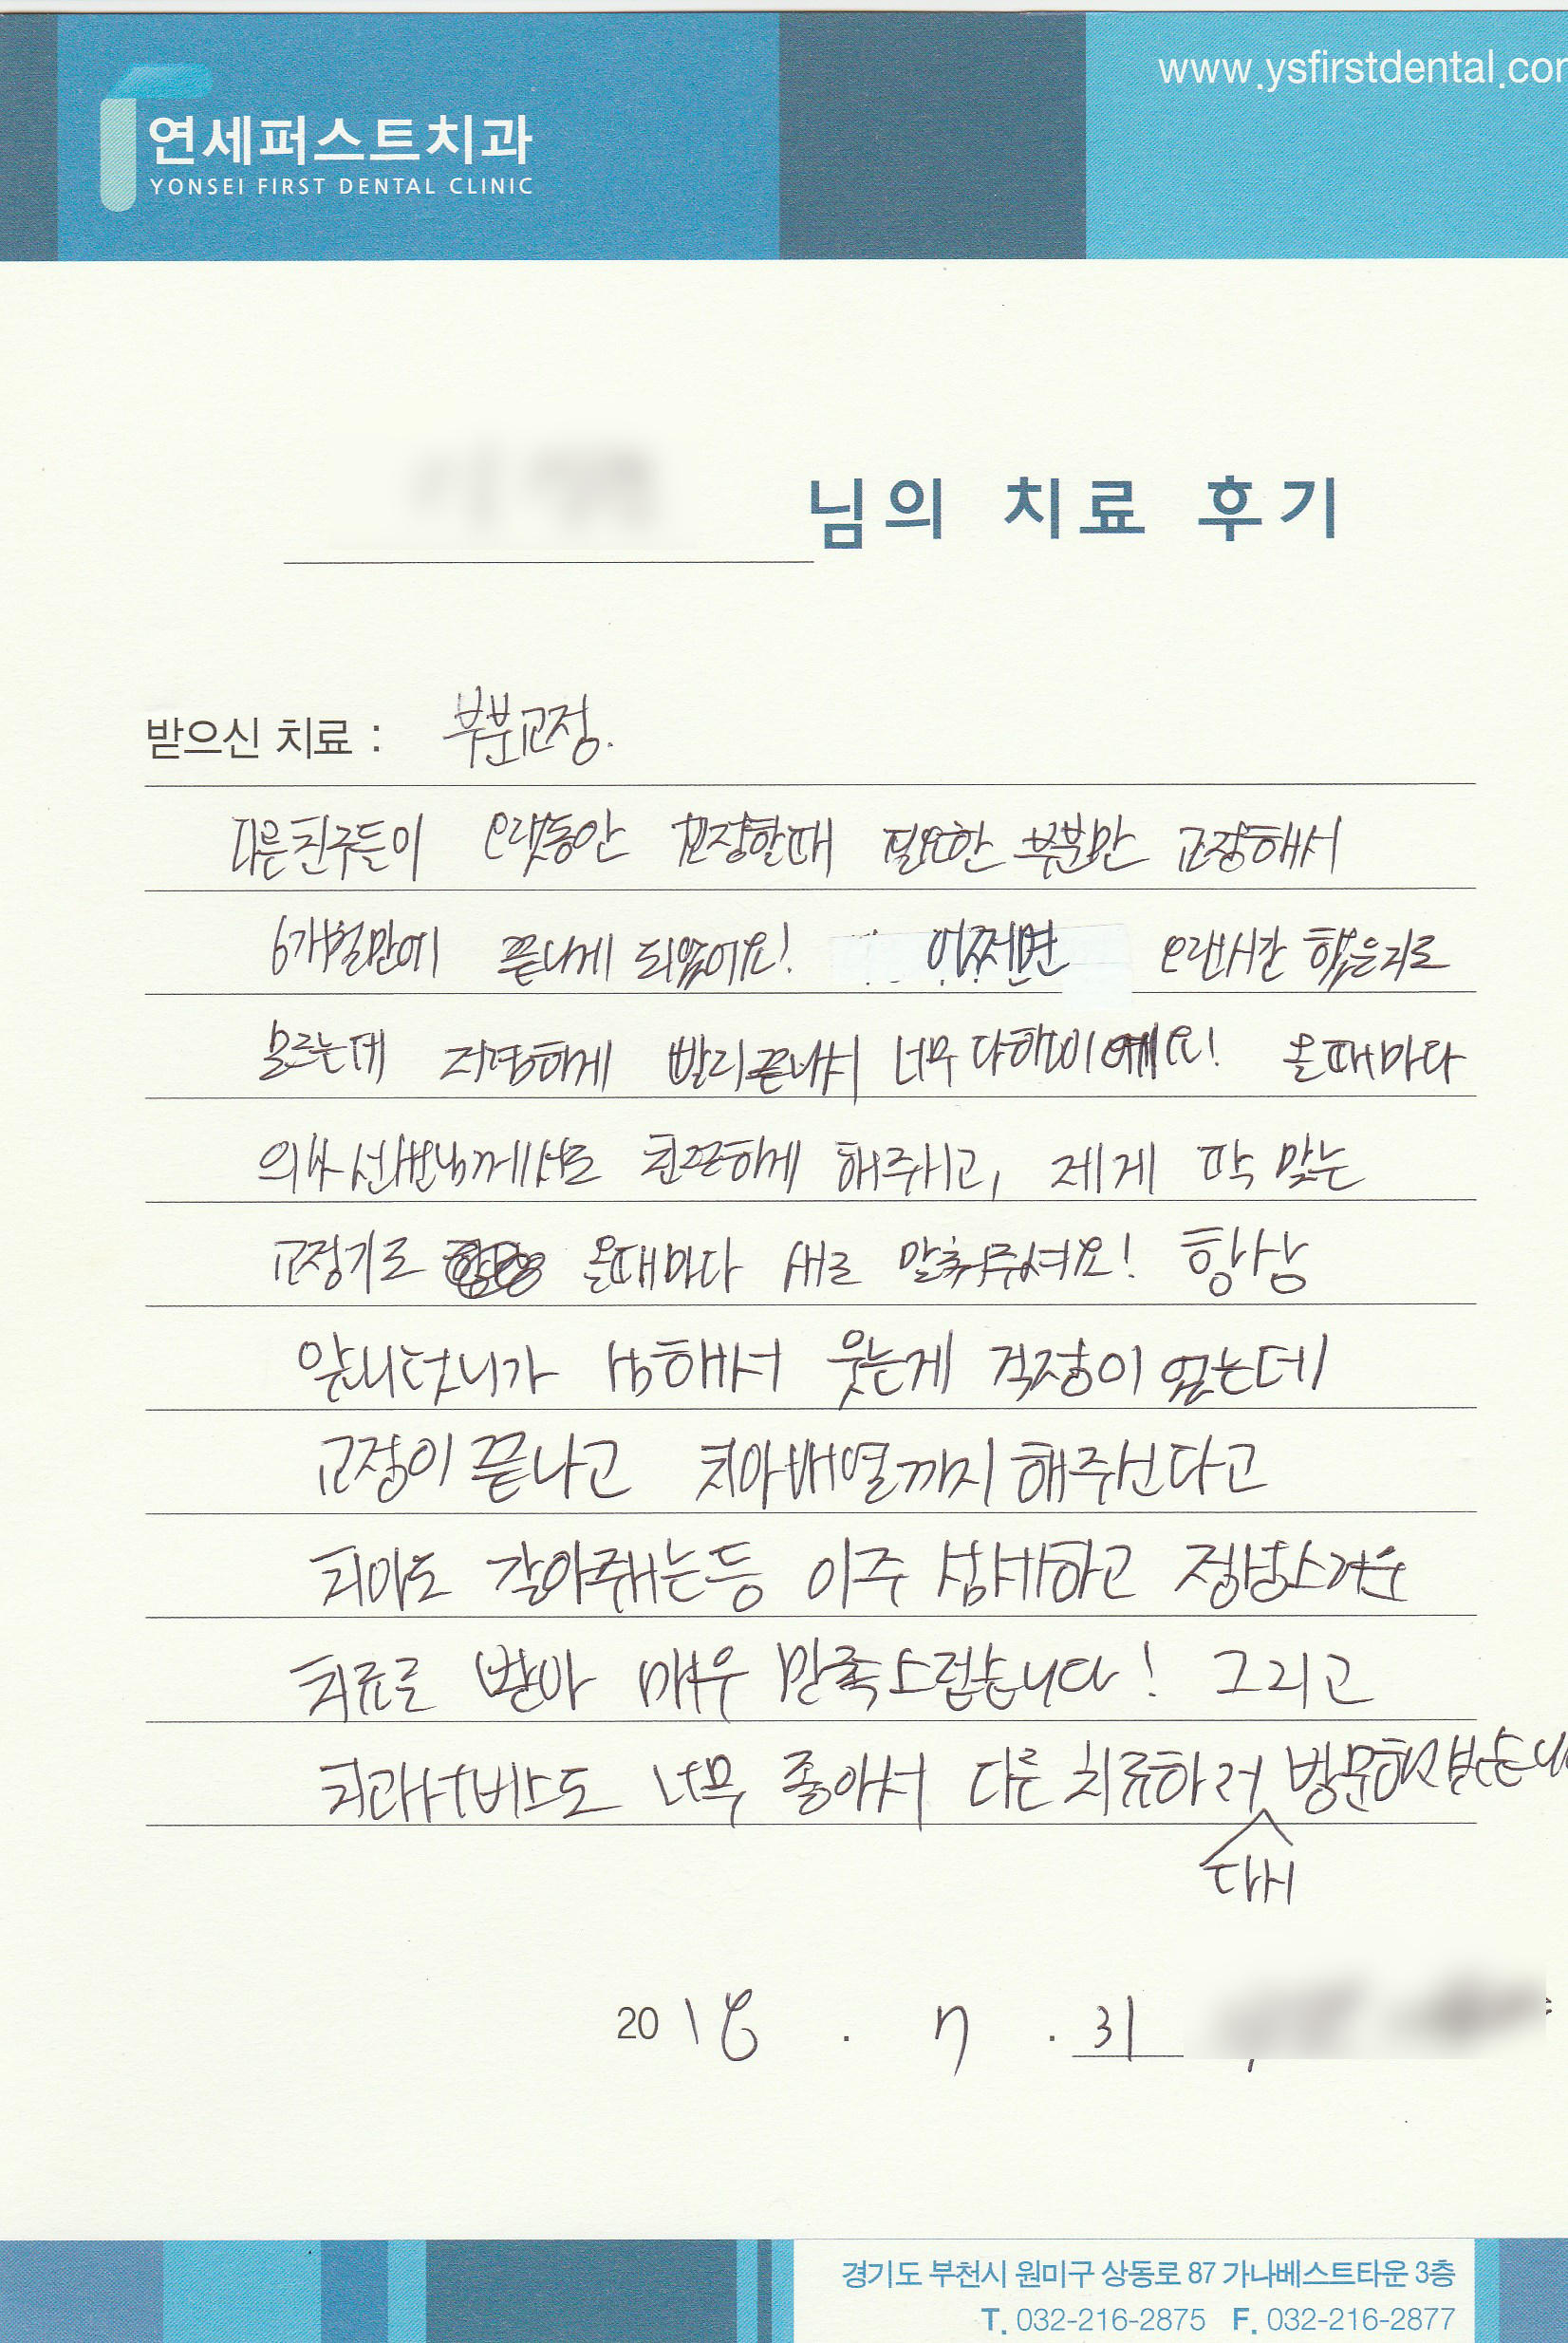 www.ysfirstdental.com
연세퍼스트치과
YONSEI FIRST DENTAL CLINIC
님의 치료 후기
받으신 치료 : 부분교정.
다른친구들이 오랫동안 교정할때 필요한 부분만 교정해서
6개월만에 끝나게 되었어요! 어쩌면 오랜시간 했을지도
모르는데 저렴하게 빨리끝나서 너무 다행이에요! 올때마다
의사선생님께서도 친절하게 해주시고, 제게 딱 맞는
교정기로 올때마다 새로 맞춰주셔요! 항상
앞니 가 심해서 웃는게 걱정이 었는데
교정이 끝나고 치아배열까지 해주신다고
치아도 갈아주시는등 아주 섬세하고 정성스러운
치료를 받아 매우 만족스럽습니다! 그리고
치과서비스도 너무 좋아서 다른 치료하러
다시
2018 . 7 . 31
경기도 부천시 원미구 상동로 87 가나베스트타운 3층
T. 032-216-2875 F. 032-216-2877